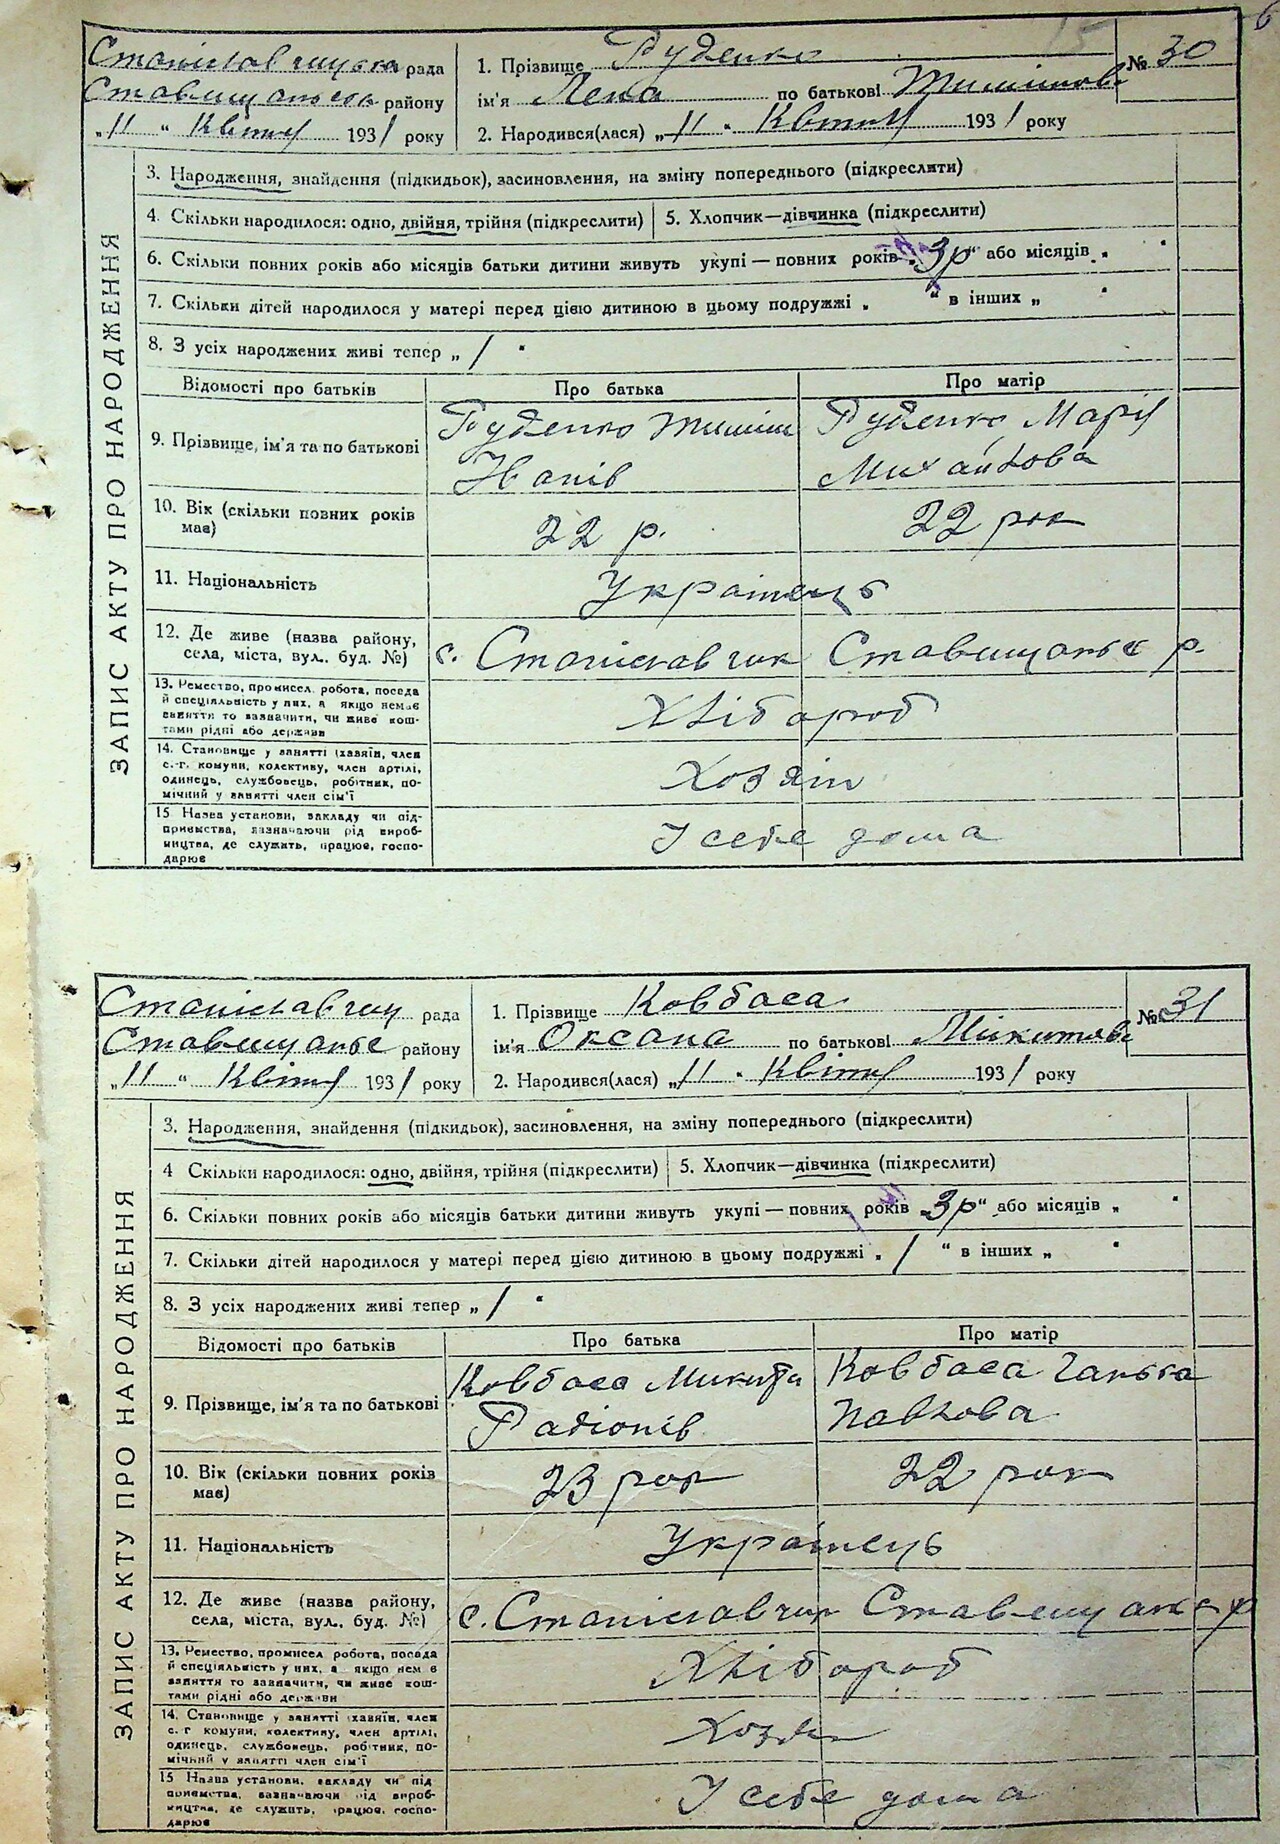 6
15
Станіславчицька рада
Ставищанськ району
„11“ Квітня 1931 року
1. Прізвище Руденко
ім'я Лена по батькові Тимішова
2. Народився(лася) „11“ Квітня 1931 року
№ 30
ЗАПИС АКТУ ПРО НАРОДЖЕННЯ
3. Народження, знайдення (підкидьок), засиновлення, на зміну попереднього (підкреслити)
4. Скільки народилося: одно, двійня, трійня (підкреслити) 5. Хлопчик—дівчинка (підкреслити)
6. Скільки повних років або місяців батьки дитини живуть укупі — повних років „3р“ або місяців „ “
7. Скільки дітей народилося у матері перед цією дитиною в цьому подружжі „ “ в інших „ “
8. З усіх народжених живі тепер „ / “
Відомості про батьків Про батька Про матір
9. Прізвище, ім'я та по батькові Руденко Тиміш Руденко Марія
Іванів Михайлова
10. Вік (скільки повних років
має) 22 р. 22 рок
11. Національність Українець
12. Де живе (назва району,
села, міста, вул. буд. №) с. Станіславчик Ставищанськ р.
13. Ремество, промисел, робота, посада
й спеціяльність у них, а якщо немає
заняття то зазначити, чи живе кош-
тами рідні або держави Хлібороб
14. Становище у занятті (хазяїн, член
с.-г. комуни, колективу, член артілі,
одинець, службовець, робітник, по-
мічний у занятті член сім'ї Хозяїн
15 Назва установи, закладу чи під-
приємства, зазначаючи рід вироб-
ництва, де служить, працює, госпо-
дарює У себе дома
Станіславчиц рада
Ставищансь району
„11“ Квітня 1931 року
1. Прізвище Ковбаса
ім'я Оксана по батькові Микитова
2. Народився(лася) „11“ Квітня 1931 року
№ 31
ЗАПИС АКТУ ПРО НАРОДЖЕННЯ
3. Народження, знайдення (підкидьок), засиновлення, на зміну попереднього (підкреслити)
4 Скільки народилося: одно, двійня, трійня (підкреслити) 5. Хлопчик—дівчинка (підкреслити)
6. Скільки повних років або місяців батьки дитини живуть укупі — повних років „3р“ або місяців „ “
7. Скільки дітей народилося у матері перед цією дитиною в цьому подружжі „ / “ в інших „ “
8. З усіх народжених живі тепер „ / “
Відомості про батьків Про батька Про матір
9. Прізвище, ім'я та по батькові Ковбаса Микита Ковбаса Ганька
Радіонів Павлова
10. Вік (скільки повних років
має) 23 рок 22 рок
11. Національність Українець
12. Де живе (назва району,
села, міста, вул. буд. №) с. Станіславчик Ставищанськ р
13. Ремество, промисел, робота, посада
й спеціяльність у них, а якщо нема
заняття то зазначити, чи живе кош-
тами рідні або держави Хлібороб
14. Становище у занятті (хазяїн, член
с.-г комуни, колективу, член артілі,
одинець, службовець, робітник, по-
мічний у занятті член сім'ї Хозяїн
15 Назва установи, закладу чи під
приємства, зазначаючи рід вироб-
ництва, де служить, працює, госпо-
дарює У себе дома